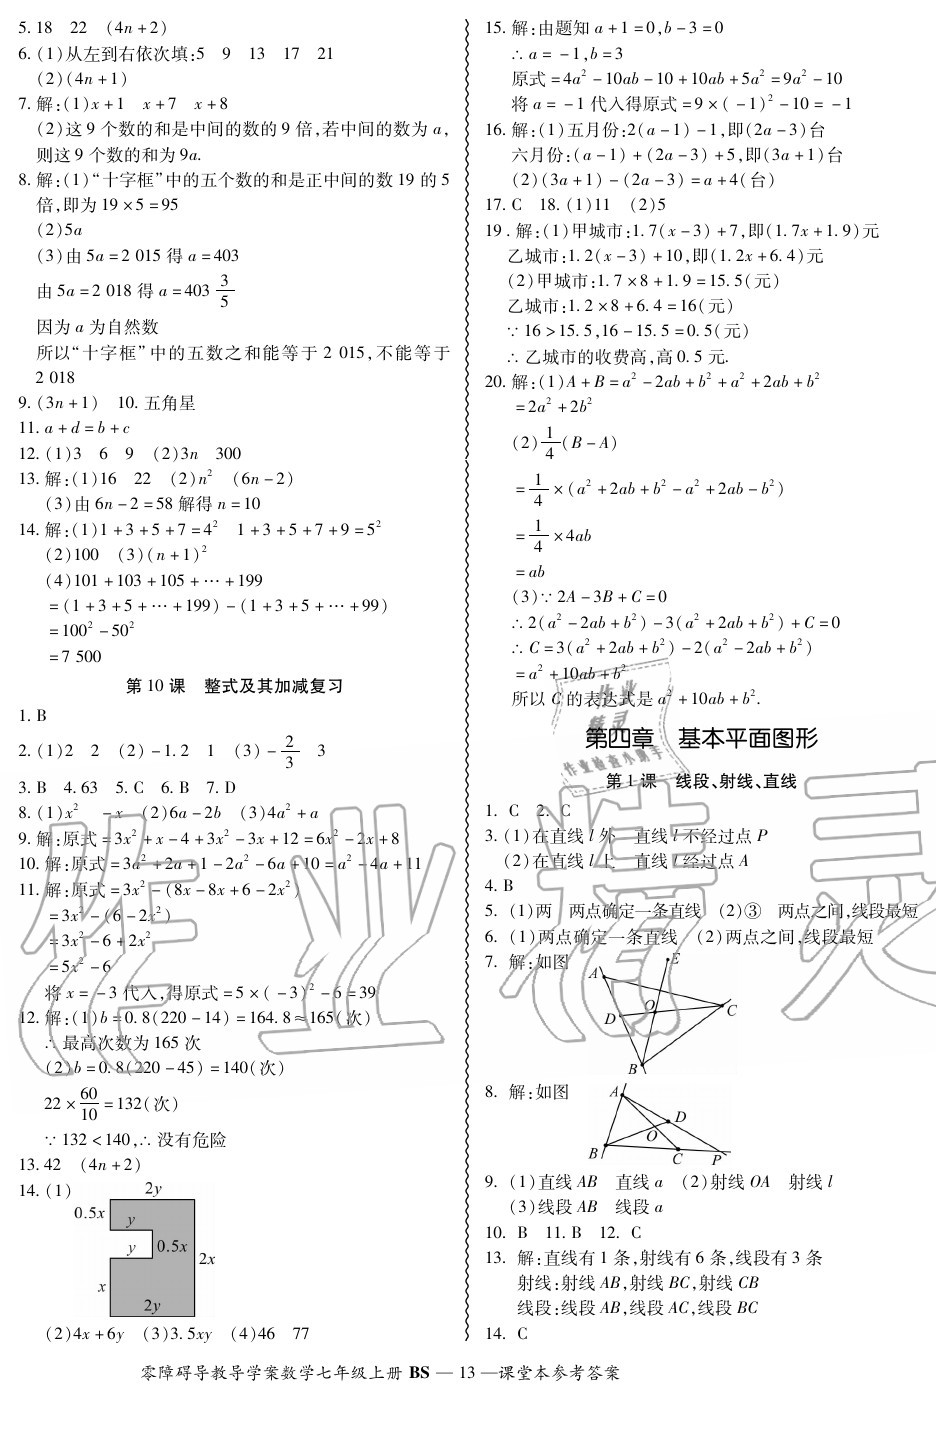 5. 18　22　(4n+2)
6. (1)从左到右依次填:5　9　13　17　21
(2)(4n+1)
7. 解:(1)x+1　x+7　x+8
(2)这 9 个数的和是中间的数的 9 倍,若中间的数为 a,
则这 9 个数的和为 9a.
8. 解:(1)“十字框”中的五个数的和是正中间的数 19 的 5
倍,即为 19×5=95
(2)5a
(3)由 5a=2 015 得 a=403
由 5a=2 018 得 a=403 3/5
因为 a 为自然数
所以“十字框”中的五数之和能等于 2 015,不能等于
2 018
9. (3n+1)　10. 五角星
11. a+d=b+c
12. (1)3　6　9　(2)3n　300
13. 解:(1)16　22　(2)n²　(6n-2)
(3)由 6n-2=58 解得 n=10
14. 解:(1)1+3+5+7=4²　1+3+5+7+9=5²
(2)100　(3)(n+1)²
(4)101+103+105+⋯+199
=(1+3+5+⋯+199)-(1+3+5+⋯+99)
=100²-50²
=7 500
第 10 课　整式及其加减复习
1. B
2. (1)2　2　(2)-1.2　1　(3)-2/3　3
3. B　4. 63　5. C　6. B　7. D
8. (1)x²　-x　(2)6a-2b　(3)4a²+a
9. 解:原式=3x²+x-4+3x²-3x+12=6x²-2x+8
10. 解:原式=3a²+2a+1-2a²-6a+10=a²-4a+11
11. 解:原式=3x²-(8x-8x+6-2x²)
=3x²-(6-2x²)
=3x²-6+2x²
=5x²-6
将 x=-3 代入,得原式=5×(-3)²-6=39
12. 解:(1)b=0.8(220-14)=164.8≈165(次)
∴ 最高次数为 165 次
(2)b=0.8(220-45)=140(次)
22×60/10=132(次)
∵ 132<140,∴ 没有危险
13. 42　(4n+2)
14. (1)
2y
0.5x
y
y
0.5x
2x
x
2y
(2)4x+6y　(3)3.5xy　(4)46　77
15. 解:由题知 a+1=0,b-3=0
∴ a=-1,b=3
原式=4a²-10ab-10+10ab+5a²=9a²-10
将 a=-1 代入得原式=9×(-1)²-10=-1
16. 解:(1)五月份:2(a-1)-1,即(2a-3)台
六月份:(a-1)+(2a-3)+5,即(3a+1)台
(2)(3a+1)-(2a-3)=a+4(台)
17. C　18. (1)11　(2)5
19. 解:(1)甲城市:1.7(x-3)+7,即(1.7x+1.9)元
乙城市:1.2(x-3)+10,即(1.2x+6.4)元
(2)甲城市:1.7×8+1.9=15.5(元)
乙城市:1.2×8+6.4=16(元)
∵ 16>15.5,16-15.5=0.5(元)
∴ 乙城市的收费高,高 0.5 元.
20. 解:(1)A+B=a²-2ab+b²+a²+2ab+b²
=2a²+2b²
(2)1/4(B-A)
=1/4×(a²+2ab+b²-a²+2ab-b²)
=1/4×4ab
=ab
(3)∵ 2A-3B+C=0
∴ 2(a²-2ab+b²)-3(a²+2ab+b²)+C=0
∴ C=3(a²+2ab+b²)-2(a²-2ab+b²)
=a²+10ab+b²
所以 C 的表达式是 a²+10ab+b².
作业
精灵
作业检查小助手
第四章　基本平面图形
第 1 课　线段、射线、直线
1. C　2. C
3. (1)在直线 l 外　直线 l 不经过点 P
(2)在直线 l 上　直线 l 经过点 A
4. B
5. (1)两　两点确定一条直线　(2)③　两点之间,线段最短
6. (1)两点确定一条直线　(2)两点之间,线段最短
7. 解:如图
A
E
O
D
C
B
8. 解:如图
A
D
O
B
C
P
9. (1)直线 AB　直线 a　(2)射线 OA　射线 l
(3)线段 AB　线段 a
10. B　11. B　12. C
13. 解:直线有 1 条,射线有 6 条,线段有 3 条
射线:射线 AB,射线 BC,射线 CB
线段:线段 AB,线段 AC,线段 BC
14. C
作业精灵
零障碍导教导学案数学七年级上册 BS — 13 —课堂本参考答案